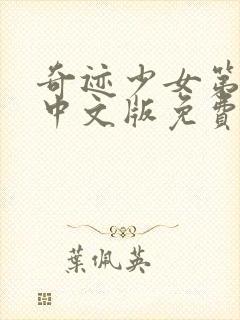 奇迹少女第
中文版免費
葉佩英